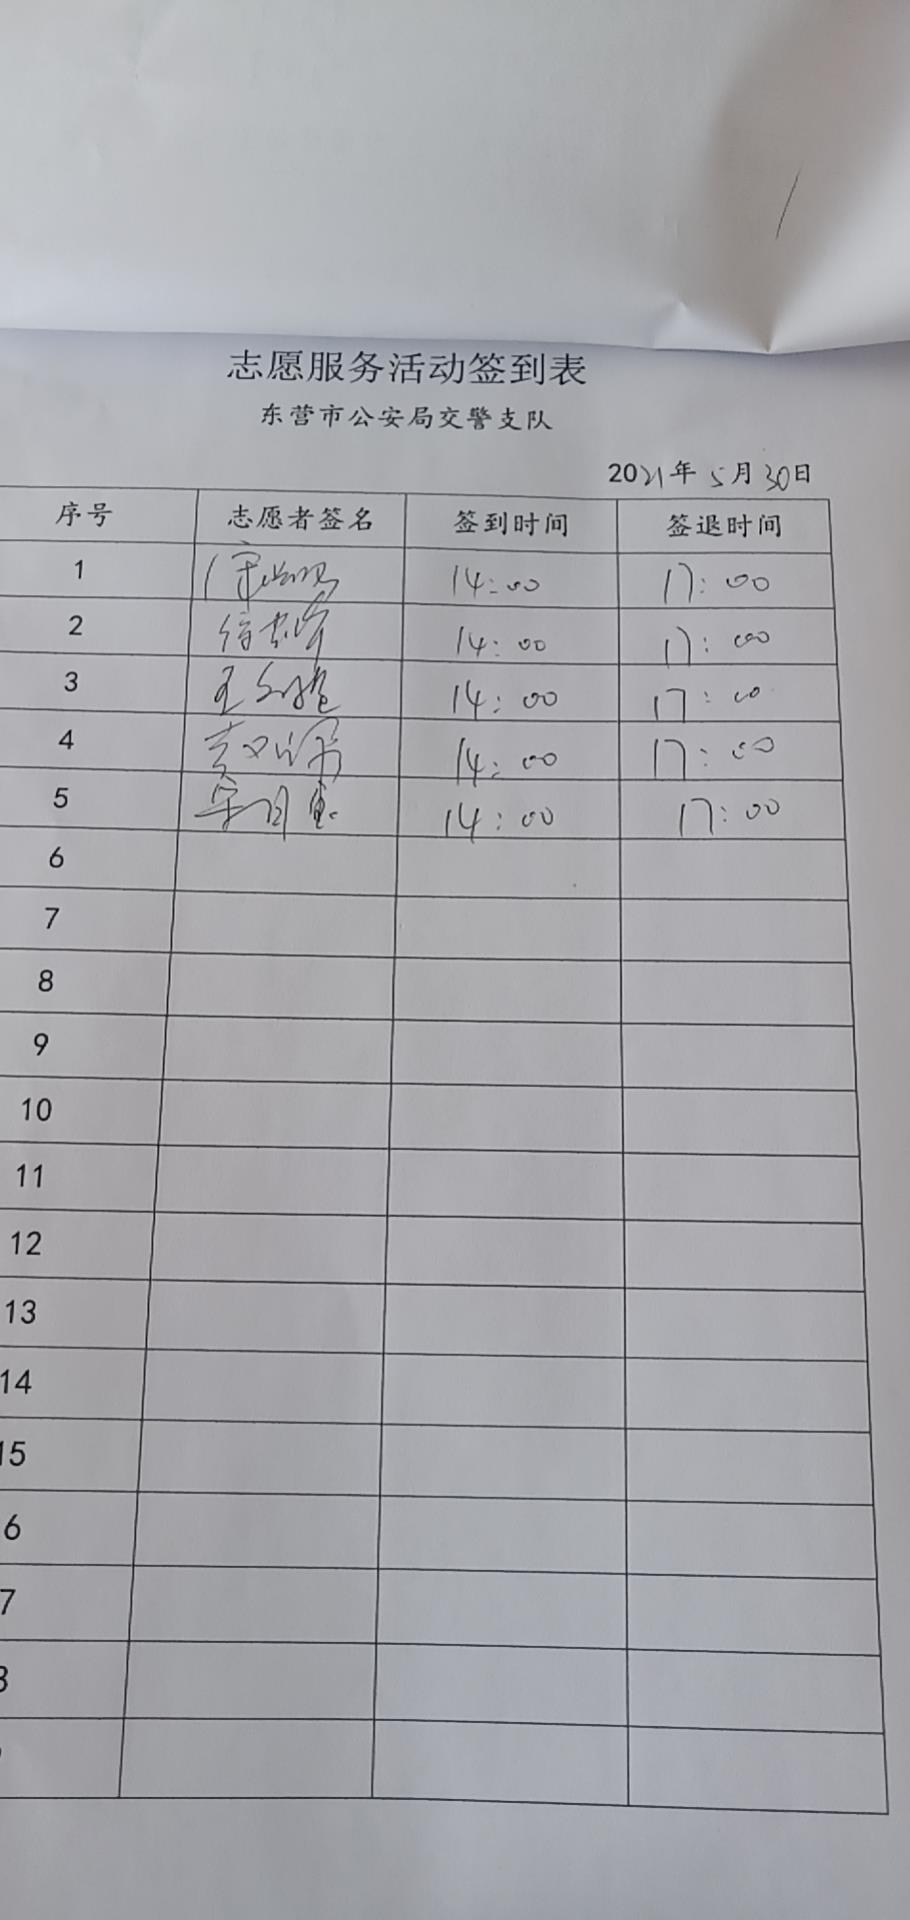 志愿服务活动签到表
东营市公安局交警支队
2021年 5月30日
序号 志愿者签名 签到时间 签退时间
1 14:00 17:00
2 14:00 17:00
3 14:00 17:00
4 14:00 17:00
5 14:00 17:00
6
7
8
9
10
11
12
13
14
15
6
7
8